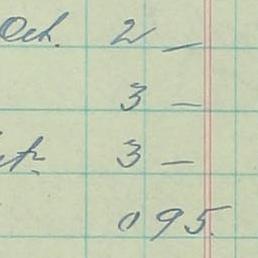 Oct. 2 —
3 —
3 —
0 95